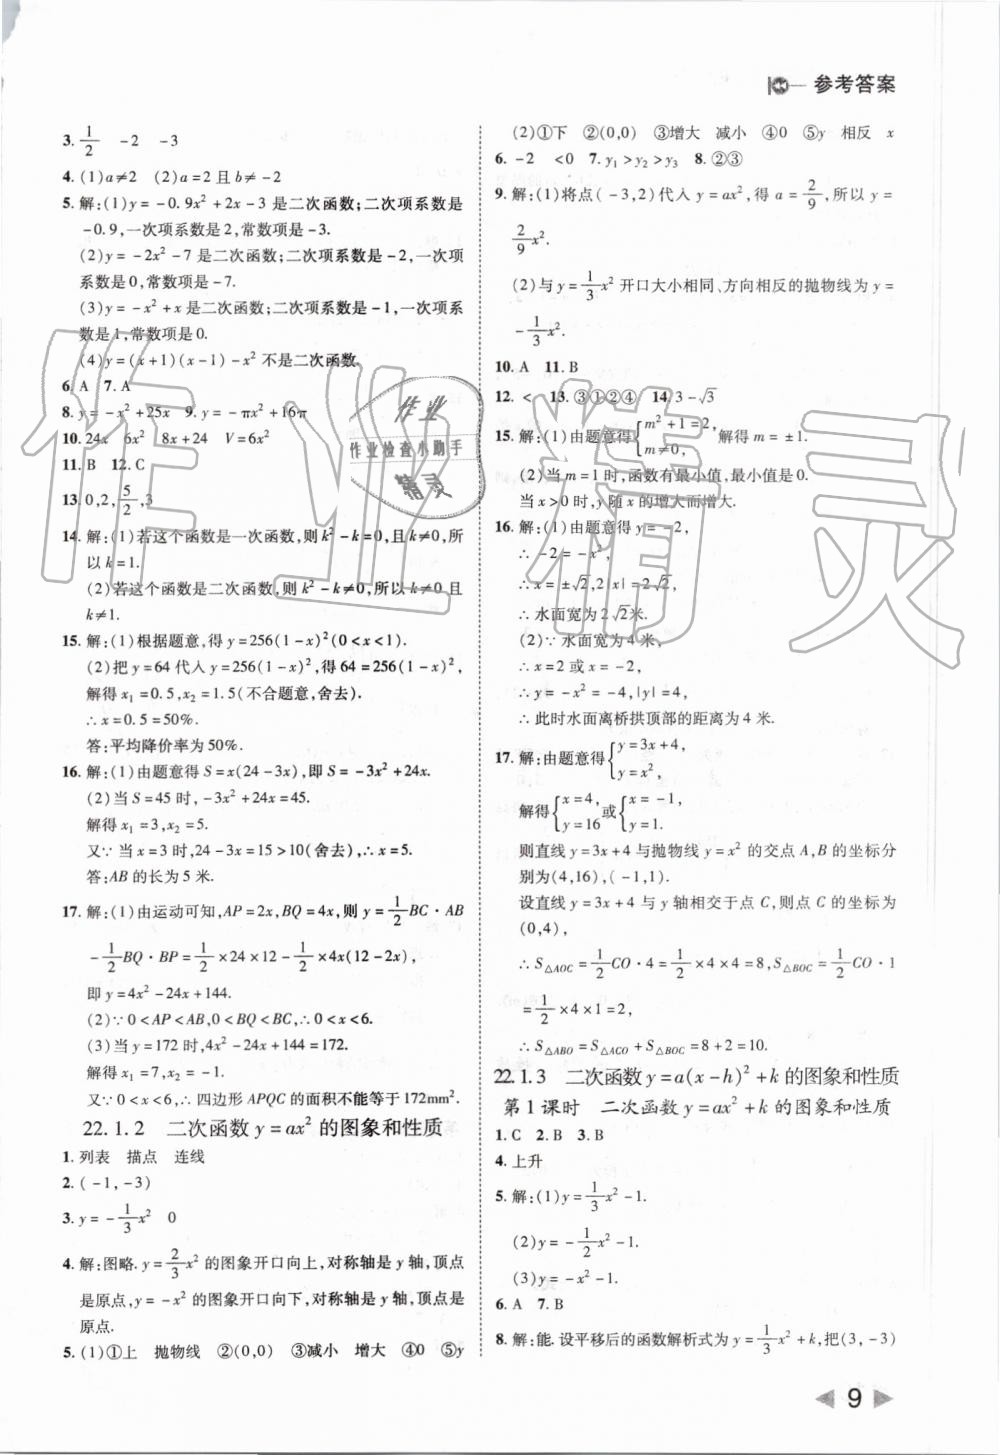 参考答案
3. 1/2　-2　-3
4. (1)a≠2　(2)a=2且b≠-2
5. 解:(1)y=-0.9x²+2x-3是二次函数;二次项系数是
-0.9,一次项系数是2,常数项是-3.
(2)y=-2x²-7是二次函数;二次项系数是-2,一次项
系数是0,常数项是-7.
(3)y=-x²+x是二次函数;二次项系数是-1,一次项
系数是1,常数项是0.
(4)y=(x+1)(x-1)-x²不是二次函数.
6. A　7. A
8. y=-x²+25x　9. y=-πx²+16π
10. 24x　6x²　8x+24　V=6x²
11. B　12. C
13. 0,2,5/2,3
14. 解:(1)若这个函数是一次函数,则k²-k=0,且k≠0,所
以k=1.
(2)若这个函数是二次函数,则k²-k≠0,所以k≠0且
k≠1.
15. 解:(1)根据题意,得y=256(1-x)²(0<x<1).
(2)把y=64代入y=256(1-x)²,得64=256(1-x)²,
解得x₁=0.5,x₂=1.5(不合题意,舍去).
∴x=0.5=50%.
答:平均降价率为50%.
16. 解:(1)由题意得S=x(24-3x),即S=-3x²+24x.
(2)当S=45时,-3x²+24x=45.
解得x₁=3,x₂=5.
又∵当x=3时,24-3x=15>10(舍去),∴x=5.
答:AB的长为5米.
17. 解:(1)由运动可知,AP=2x,BQ=4x,则y=1/2BC·AB
-1/2BQ·BP=1/2×24×12-1/2×4x(12-2x),
即y=4x²-24x+144.
(2)∵0<AP<AB,0<BQ<BC,∴0<x<6.
(3)当y=172时,4x²-24x+144=172.
解得x₁=7,x=-1.
又∵0<x<6,∴四边形APQC的面积不能等于172mm².
22.1.2　二次函数y=ax²的图象和性质
1. 列表　描点　连线
2. (-1,-3)
3. y=-1/3x²　0
4. 解:图略.y=2/3x²的图象开口向上,对称轴是y轴,顶点
是原点,y=-x²的图象开口向下,对称轴是y轴,顶点是
原点.
5. (1)①上　抛物线　②(0,0)　③减小　增大　④0　⑤y
(2)①下　②(0,0)　③增大　减小　④0　⑤y　相反　x
6. -2　<0　7. y₁>y₂>y₃　8. ②③
9. 解:(1)将点(-3,2)代入y=ax²,得a=2/9,所以y=
2/9x².
(2)与y=1/3x²开口大小相同、方向相反的抛物线为y=
-1/3x².
10. A　11. B
12. <　13. ③①②④　14. 3-√3
15. 解:(1)由题意得{m²+1=2, m≠0, 解得m=±1.
(2)当m=1时,函数有最小值,最小值是0.
当x>0时,y随x的增大而增大.
16. 解:(1)由题意得y=-2,
∴-2=-x²,
∴x=±√2,2|x|=2√2.
∴水面宽为2√2米.
(2)∵水面宽为4米,
∴x=2或x=-2,
∴y=-x²=-4,|y|=4.
∴此时水面离桥拱顶部的距离为4米.
17. 解:由题意得{y=3x+4, y=x²,
解得{x=4, y=16或{x=-1, y=1.
则直线y=3x+4与抛物线y=x²的交点A,B的坐标分
别为(4,16),(-1,1).
设直线y=3x+4与y轴相交于点C,则点C的坐标为
(0,4),
∴S△AOC=1/2CO·4=1/2×4×4=8,S△BOC=1/2CO·1
=1/2×4×1=2,
∴S△ABO=S△ACO+S△BOC=8+2=10.
22.1.3　二次函数y=a(x-h)²+k的图象和性质
第1课时　二次函数y=ax²+k的图象和性质
1. C　2. B　3. B
4. 上升
5. 解:(1)y=1/3x²-1.
(2)y=-1/3x²-1.
(3)y=-x²-1.
6. A　7. B
8. 解:能.设平移后的函数解析式为y=1/3x²+k,把(3,-3)
9
作业精灵
作业
作业检查小助手
精灵